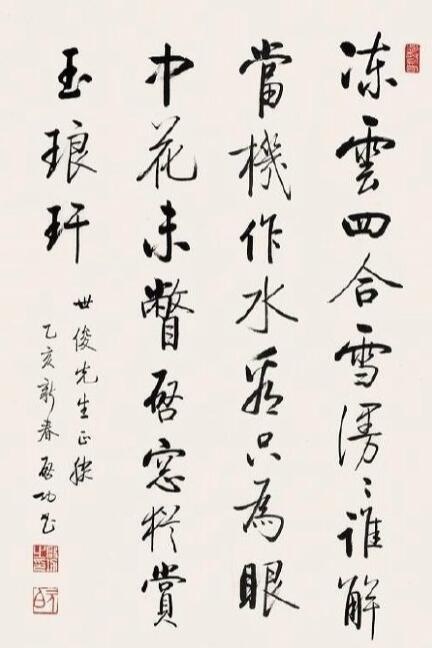 凍雲四合雪漫〻誰解
當機作水看只為眼
中花未瞥啓窓猶賞
玉琅玕
世俊先生正
乙亥新春 啓功書